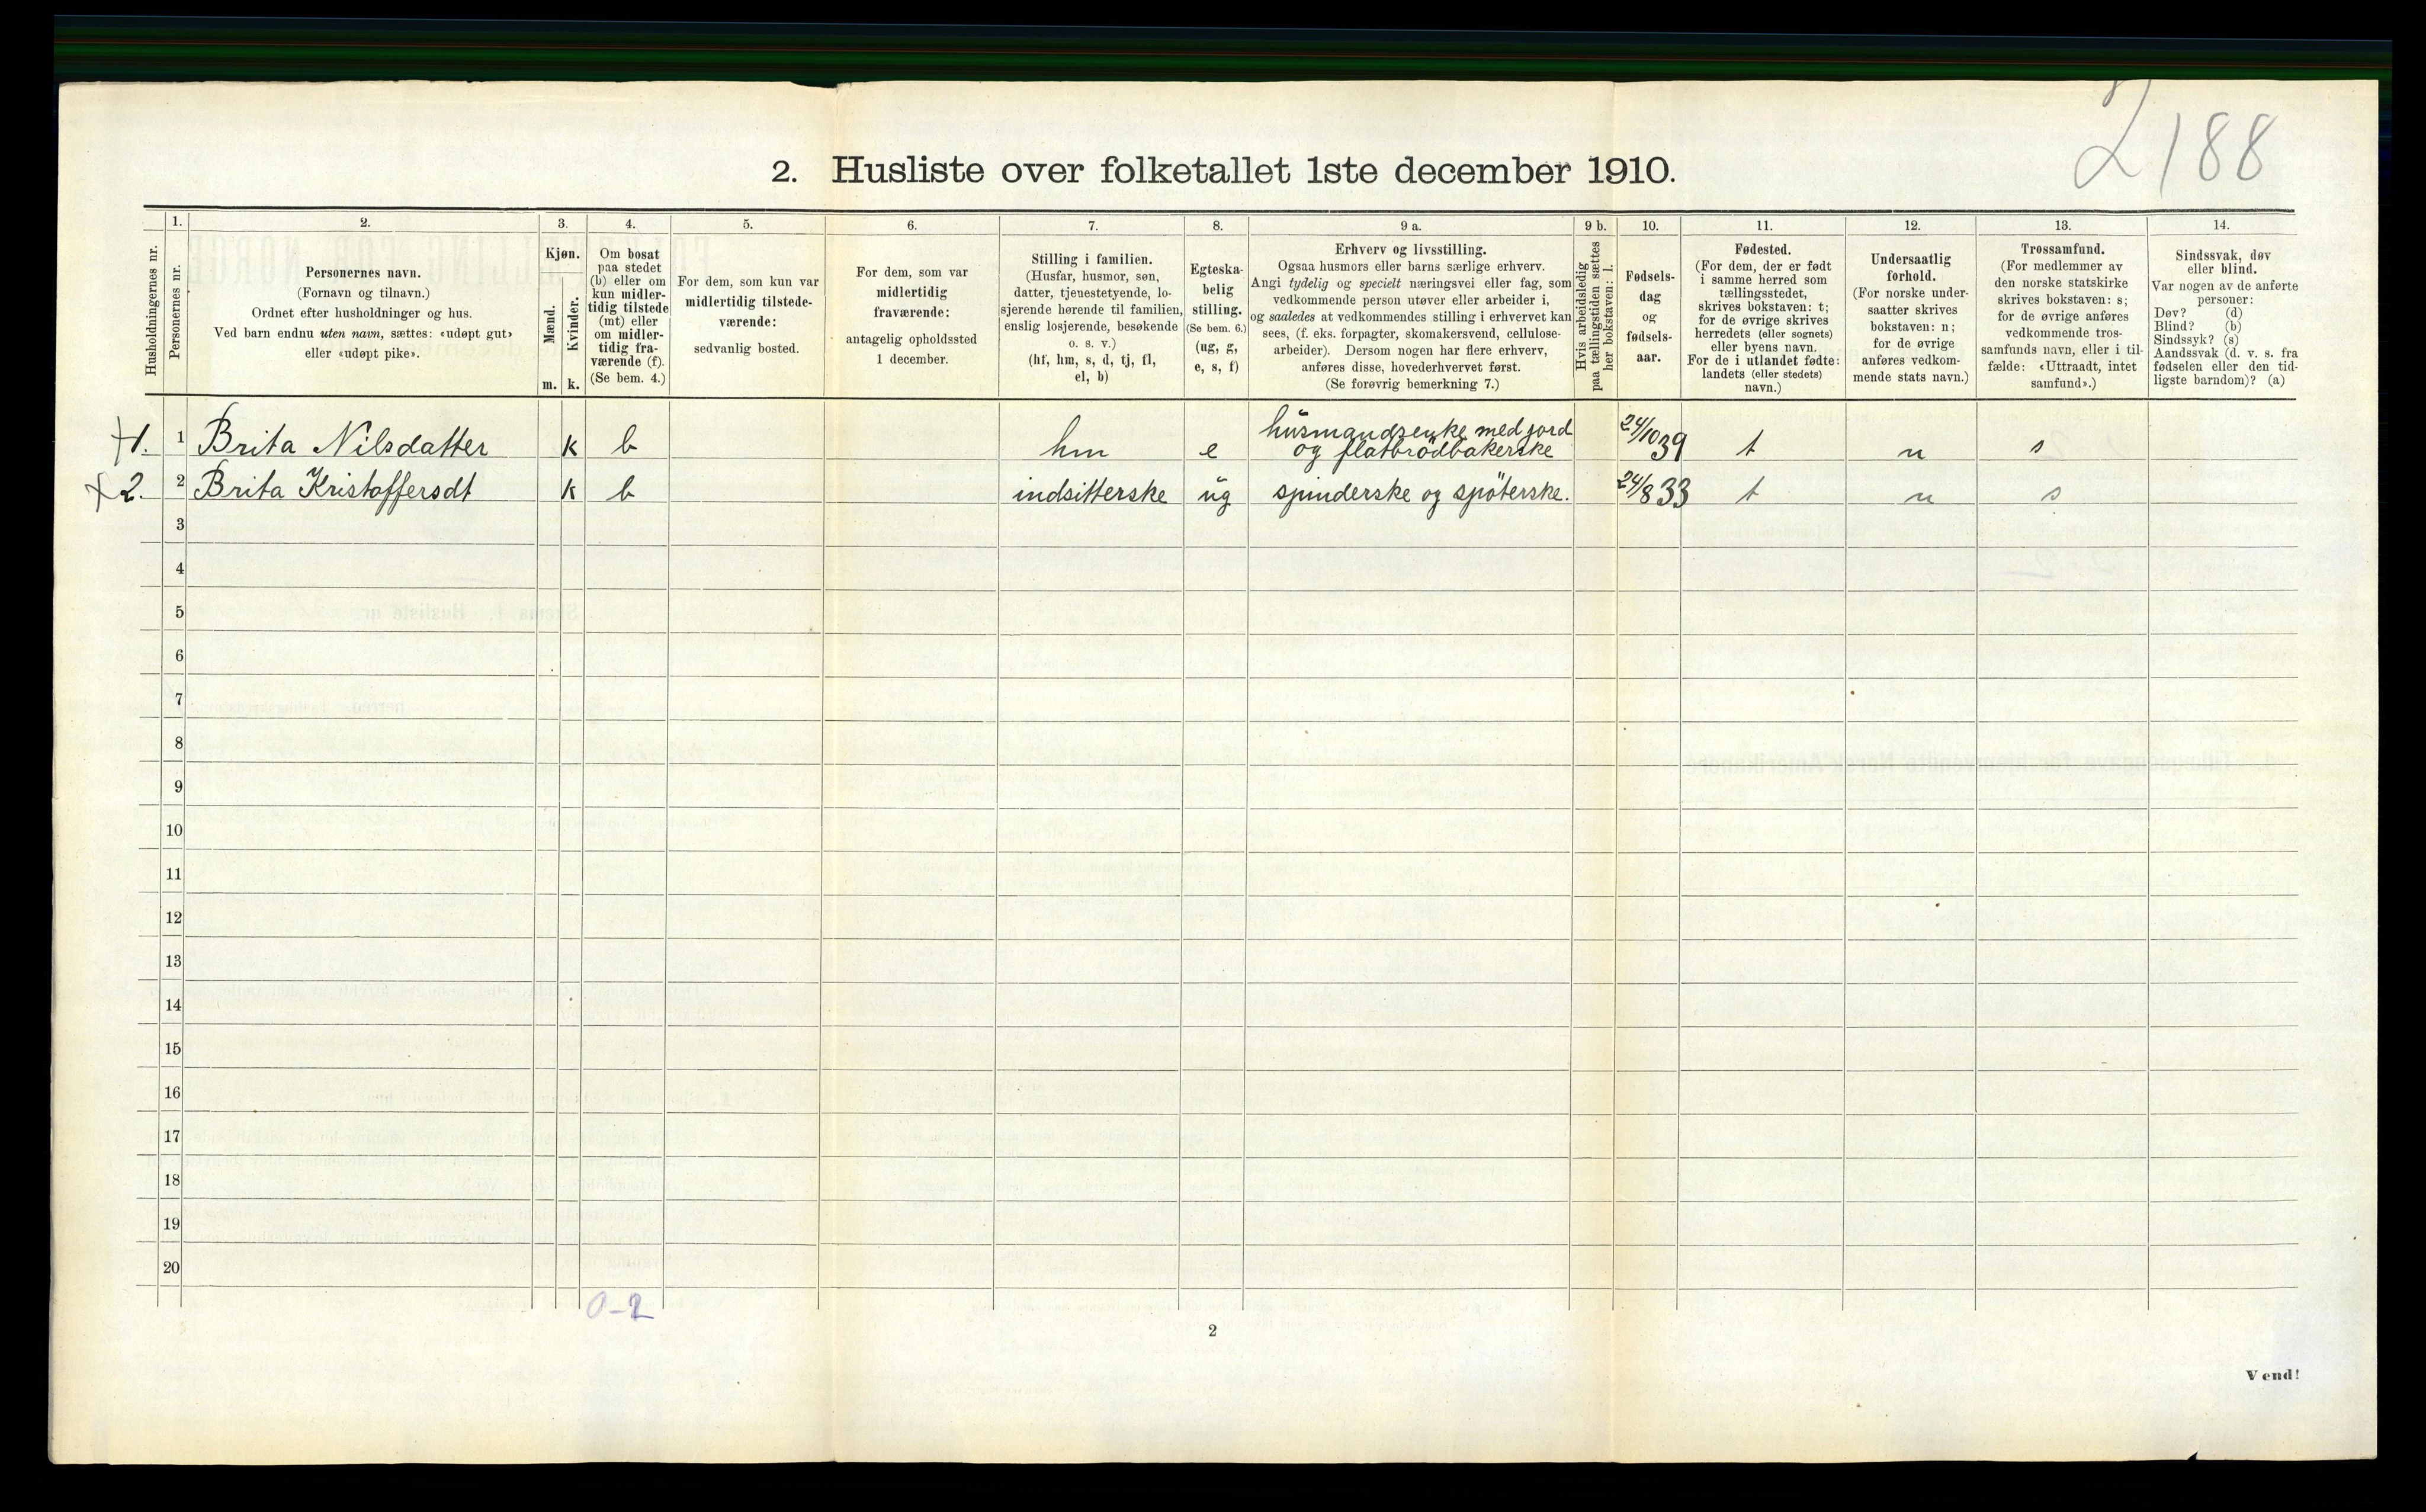 2188
2. Husliste over folketallet 1ste december 1910.
Husholdningernes nr.
1.
Personernes nr.
2.
Personernes navn.
(Fornavn og tilnavn.)
Ordnet efter husholdninger og hus.
Ved barn endnu uten navn, sættes: «udøpt gut»
eller «udøpt pike».
3.
Kjøn.
Mænd.
Kvinder.
m. k.
4.
Om bosat
paa stedet
(b) eller om
kun midler-
tidig tilstede
(mt) eller
om midler-
tidig fra-
værende (f).
(Se bem. 4.)
5.
For dem, som kun var
midlertidig tilstede-
værende:
sedvanlig bosted.
6.
For dem, som var
midlertidig
fraværende:
antagelig opholdssted
1 december.
7.
Stilling i familien.
(Husfar, husmor, søn,
datter, tjenestetyende, lo-
sjerende hørende til familien,
enslig losjerende, besøkende
o. s. v.)
(hf, hm, s, d, tj, fl,
el, b)
8.
Egteska-
belig
stilling.
(Se bem. 6.)
(ug, g,
e, s, f)
9 a.
Erhverv og livsstilling.
Ogsaa husmors eller barns særlige erhverv.
Angi tydelig og specielt næringsvei eller fag, som
vedkommende person utøver eller arbeider i,
og saaledes at vedkommendes stilling i erhvervet kan
sees, (f. eks. forpagter, skomakersvend, cellulose-
arbeider). Dersom nogen har flere erhverv,
anføres disse, hovederhvervet først.
(Se forøvrig bemerkning 7.)
9 b.
Hvis arbeidsledig
paa tællingstiden sættes
her bokstaven: l.
10.
Fødsels-
dag
og
fødsels-
aar.
11.
Fødested.
(For dem, der er født
i samme herred som
tællingsstedet,
skrives bokstaven: t;
for de øvrige skrives
herredets (eller sognets)
eller byens navn.
For de i utlandet fødte:
landets (eller stedets)
navn.)
12.
Undersaatlig
forhold.
(For norske under-
saatter skrives
bokstaven: n;
for de øvrige
anføres vedkom-
mende stats navn.)
13.
Trossamfund.
(For medlemmer av
den norske statskirke
skrives bokstaven: s;
for de øvrige anføres
vedkommende tros-
samfunds navn, eller i til-
fælde: «Uttraadt, intet
samfund».)
14.
Sindssvak, døv
eller blind.
Var nogen av de anførte
personer:
Døv? (d)
Blind? (b)
Sindssyk? (s)
Aandssvak (d. v. s. fra
fødselen eller den tid-
ligste barndom)? (a)
1. 1 Brita Nilsdatter k b hm e husmandsenke med jord og flatbrödbakerske 24/10 39 t n s
2. 2 Brita Kristoffersdt k b indsitterske ug spinderske og spöterske. 24/8 33 t n s
3
4
5
6
7
8
9
10
11
12
13
14
15
16
17
18
19
20
0-2
2
Vend!